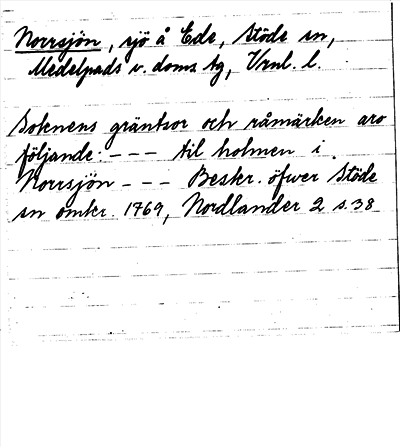 Norrsjön, sjö å Ede, Stöde sn,
Medelpads v. doms. tg, Vrnl. l.
Soknens gräntsor och råmärken äro
följande: --- til holmen i
Norrsjön --- Beskr. öfwer Stöde
sn omkr. 1769, Nordlander 2 s. 38